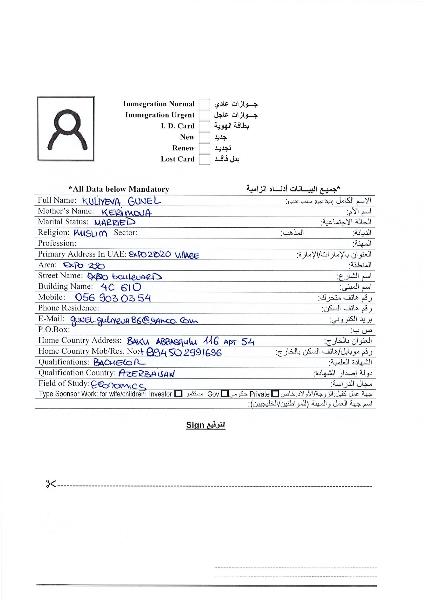 Immegration Normal جـوازات عادي
Immegration Urgent جـوازات عاجل
I. D. Card بطاقة الهوية
New جديد
Renew تجديد
Lost Card بدل فاقد
*All Data below Mandatory *جميع البيانات أدناه الزامية
Full Name: KULIYEVA GUNEL الاسم الكامل
Mother's Name: KERIMOVA اسم الأم:
Marital Status: MARRIED الحالة الاجتماعية:
Religion: MUSLIM Sector: المذهب: الديانة:
Profession: المهنة:
Primary Address In UAE: EXPO2020 VILLAGE العنوان بالإمارات/الإمارة:
Area: EXPO المنطقة:
Street Name: EXPO boulevARD اسم الشارع:
Building Name: 4C 610 اسم المبنى:
Mobile: 056 903 03 54 رقم هاتف متحرك:
Phone Residence: رقم هاتف السكن:
E-Mail: بريد الكتروني:
P.O.Box: ص ب:
Home Country Address: BAKU ABBASQULU 116 APT 54 العنوان بالخارج:
Home Country Mob/Res. No: +994502991696 رقم موبايل/هاتف السكن بالخارج:
Qualifications: BACHELOR الشهادة العلمية:
Qualification Country: AZERBAIJAN دولة إصدار الشهادة:
Field of Study: ECONOMICS مجال الدراسة:
Type Sponsor Work: for wife/children Investor مستثمر Gov حكومي Private خاص جهة عمل كفيل الزوجة/الأولاد
اسم جهة العمل والمهنة (للمواطنين/الخليجيين):
Sign التوقيع